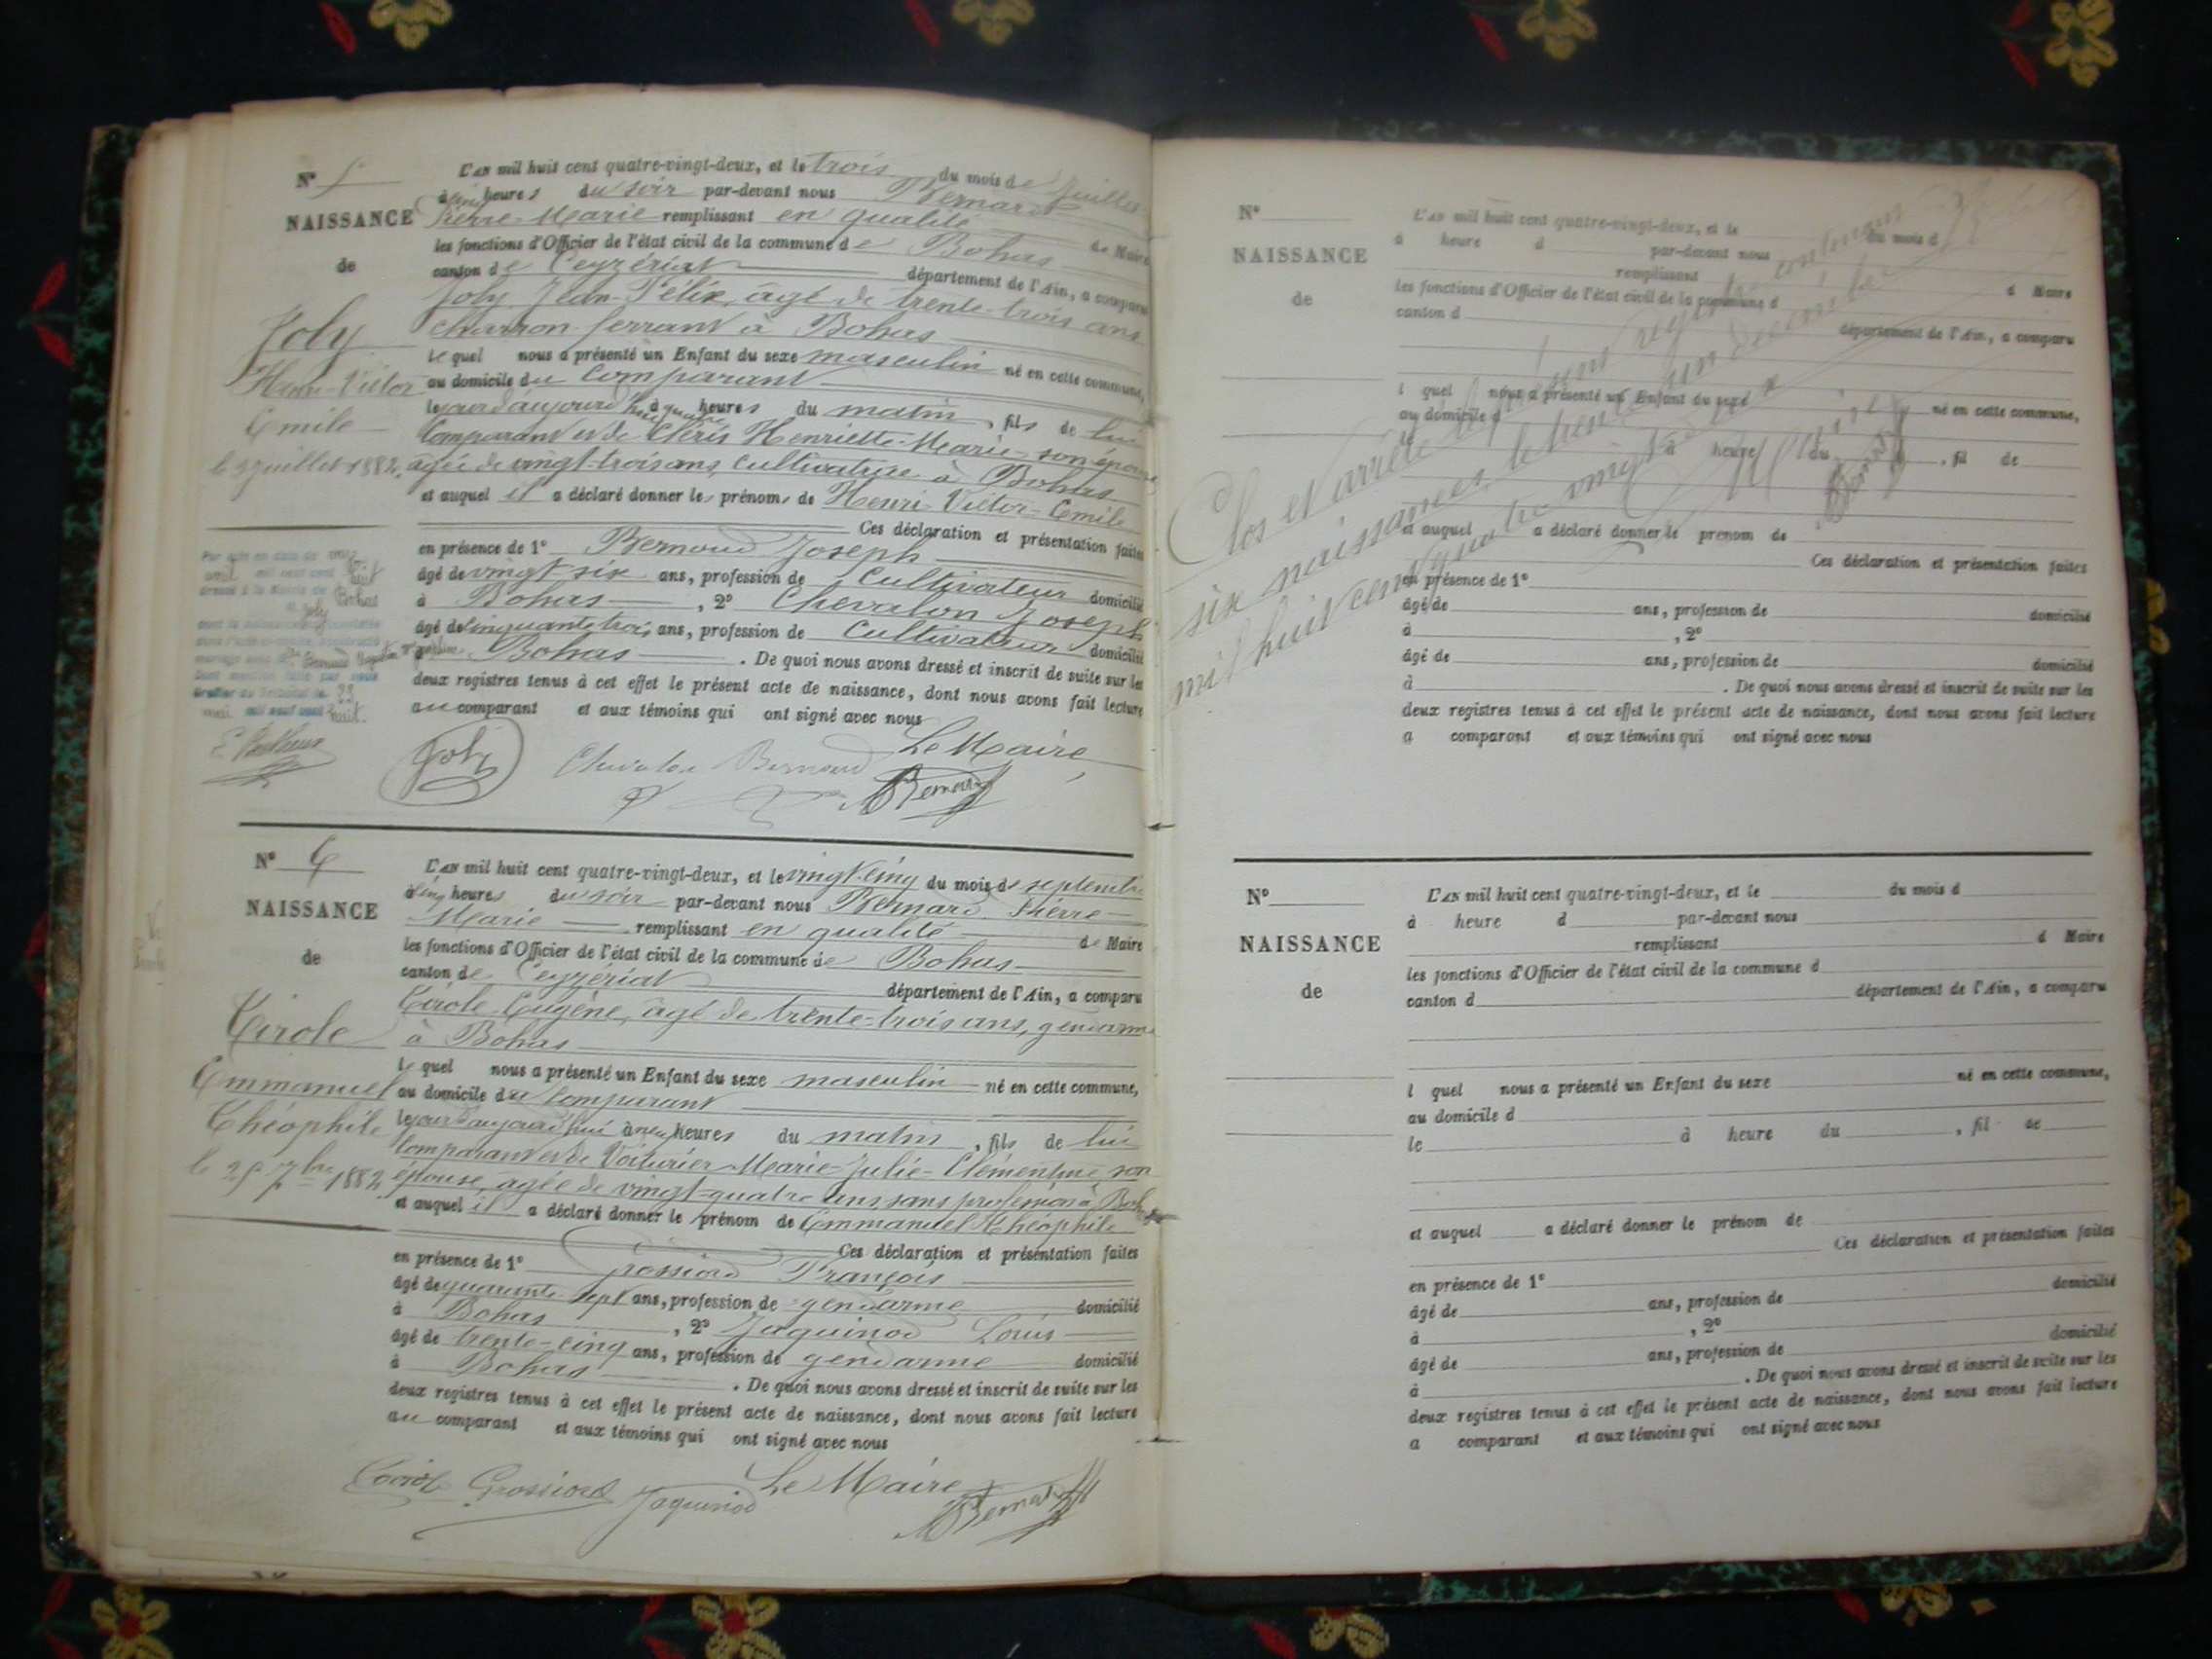 N° 5
NAISSANCE
de
Joly
Henri-Victor
Emile
le 3 juillet 1882.
L'AN mil huit cent quatre-vingt-deux, et le trois du mois de Juillet
à cinq heures du soir par-devant nous Bernard
Pierre-Marie remplissant en qualité de Maire
les fonctions d'Officier de l'état civil de la commune de Bohas
canton de Ceyzériat département de l'Ain, a comparu
Joly Jean-Félix, âgé de trente-trois ans
charron ferrant à Bohas
lequel nous a présenté un Enfant du sexe masculin né en cette commune,
au domicile du comparant
le jourd'aujourd'hui à quatre heures du matin, fils de lui
comparant et de Cléris Henriette-Marie son épouse
agée de vingt-trois ans, cultivatrice à Bohas
et auquel il a déclaré donner les prénoms de Henri-Victor-Emile
Ces déclaration et présentation faites
en présence de 1° Bernoud Joseph
âgé de vingt six ans, profession de cultivateur domicilié
à Bohas, 2° Chevalon Joseph
âgé de cinquante trois ans, profession de cultivateur domicilié
Bohas. De quoi nous avons dressé et inscrit de suite sur les
deux registres tenus à cet effet le présent acte de naissance, dont nous avons fait lecture
au comparant et aux témoins qui ont signé avec nous
Le Maire
Joly Chevalon Bernoud Bernard
Par acte en date du
avril mil neuf cent huit
dressé à la Mairie de Bohas
M. Joly
mariage avec
Dont mention faite par nous
Greffier du Tribunal le 22
mai mil neuf cent huit.
N° 6
NAISSANCE
de
Cirole
Emmanuel
Théophile
le 25 7bre 1882.
L'AN mil huit cent quatre-vingt-deux, et le vingt-cinq du mois de septembre
à cinq heures du soir par-devant nous Bernard Pierre-
Marie remplissant en qualité de Maire
les fonctions d'Officier de l'état civil de la commune de Bohas
canton de Ceyzériat département de l'Ain, a comparu
Cirole Eugène, âgé de trente-trois ans, gendarme
à Bohas
lequel nous a présenté un Enfant du sexe masculin né en cette commune,
au domicile du comparant
le jour d'aujourd'hui à neuf heures du matin, fils de lui
comparant et de Voiturier Marie-Julie-Clémentine son
épouse, agée de vingt-quatre ans, sans profession à Bohas
et auquel il a déclaré donner le prénom de Emmanuel Théophile
Ces déclaration et présentation faites
en présence de 1° Grossiord François
âgé de quarante sept ans, profession de gendarme domicilié
à Bohas, 2° Jaquinod Louis
âgé de trente-cinq ans, profession de gendarme domicilié
à Bohas. De quoi nous avons dressé et inscrit de suite sur les
deux registres tenus à cet effet le présent acte de naissance, dont nous avons fait lecture
au comparant et aux témoins qui ont signé avec nous
Le Maire
Cirole Grossiord Jaquinod Bernard
N°
NAISSANCE
de
L'AN mil huit cent quatre-vingt-deux, et le du mois d
à heure d par-devant nous
remplissant d Maire
les fonctions d'Officier de l'état civil de la commune d
canton d département de l'Ain, a comparu
l quel nous a présenté un Enfant du sexe né en cette commune,
au domicile d
le à heure du, fil de
et auquel a déclaré donner le prénom de
Ces déclaration et présentation faites
en présence de 1°
âgé de ans, profession de domicilié
à, 2°
âgé de ans, profession de domicilié
à. De quoi nous avons dressé et inscrit de suite sur les
deux registres tenus à cet effet le présent acte de naissance, dont nous avons fait lecture
a comparant et aux témoins qui ont signé avec nous
Clos et arrêté le présent registre contenant
six naissances, le trente un décembre
mil huit cent quatre vingt deux
Le Maire
Bernard
N°
NAISSANCE
de
L'AN mil huit cent quatre-vingt-deux, et le du mois d
à heure d par-devant nous
remplissant d Maire
les fonctions d'Officier de l'état civil de la commune d
canton d département de l'Ain, a comparu
l quel nous a présenté un Enfant du sexe né en cette commune,
au domicile d
le à heure du, fil de
et auquel a déclaré donner le prénom de
Ces déclaration et présentation faites
en présence de 1°
âgé de ans, profession de domicilié
à, 2°
âgé de ans, profession de domicilié
à. De quoi nous avons dressé et inscrit de suite sur les
deux registres tenus à cet effet le présent acte de naissance, dont nous avons fait lecture
a comparant et aux témoins qui ont signé avec nous